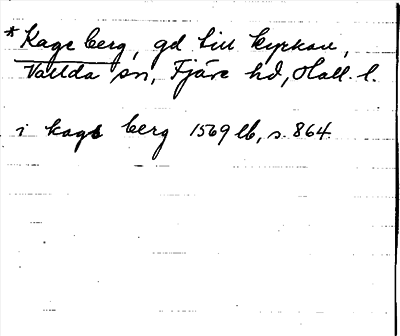 *Kage berg, gd till kyrkan,
Vallda sn, Fjäre hd, Hall. l.
i kage berg 1569 lb, s. 864